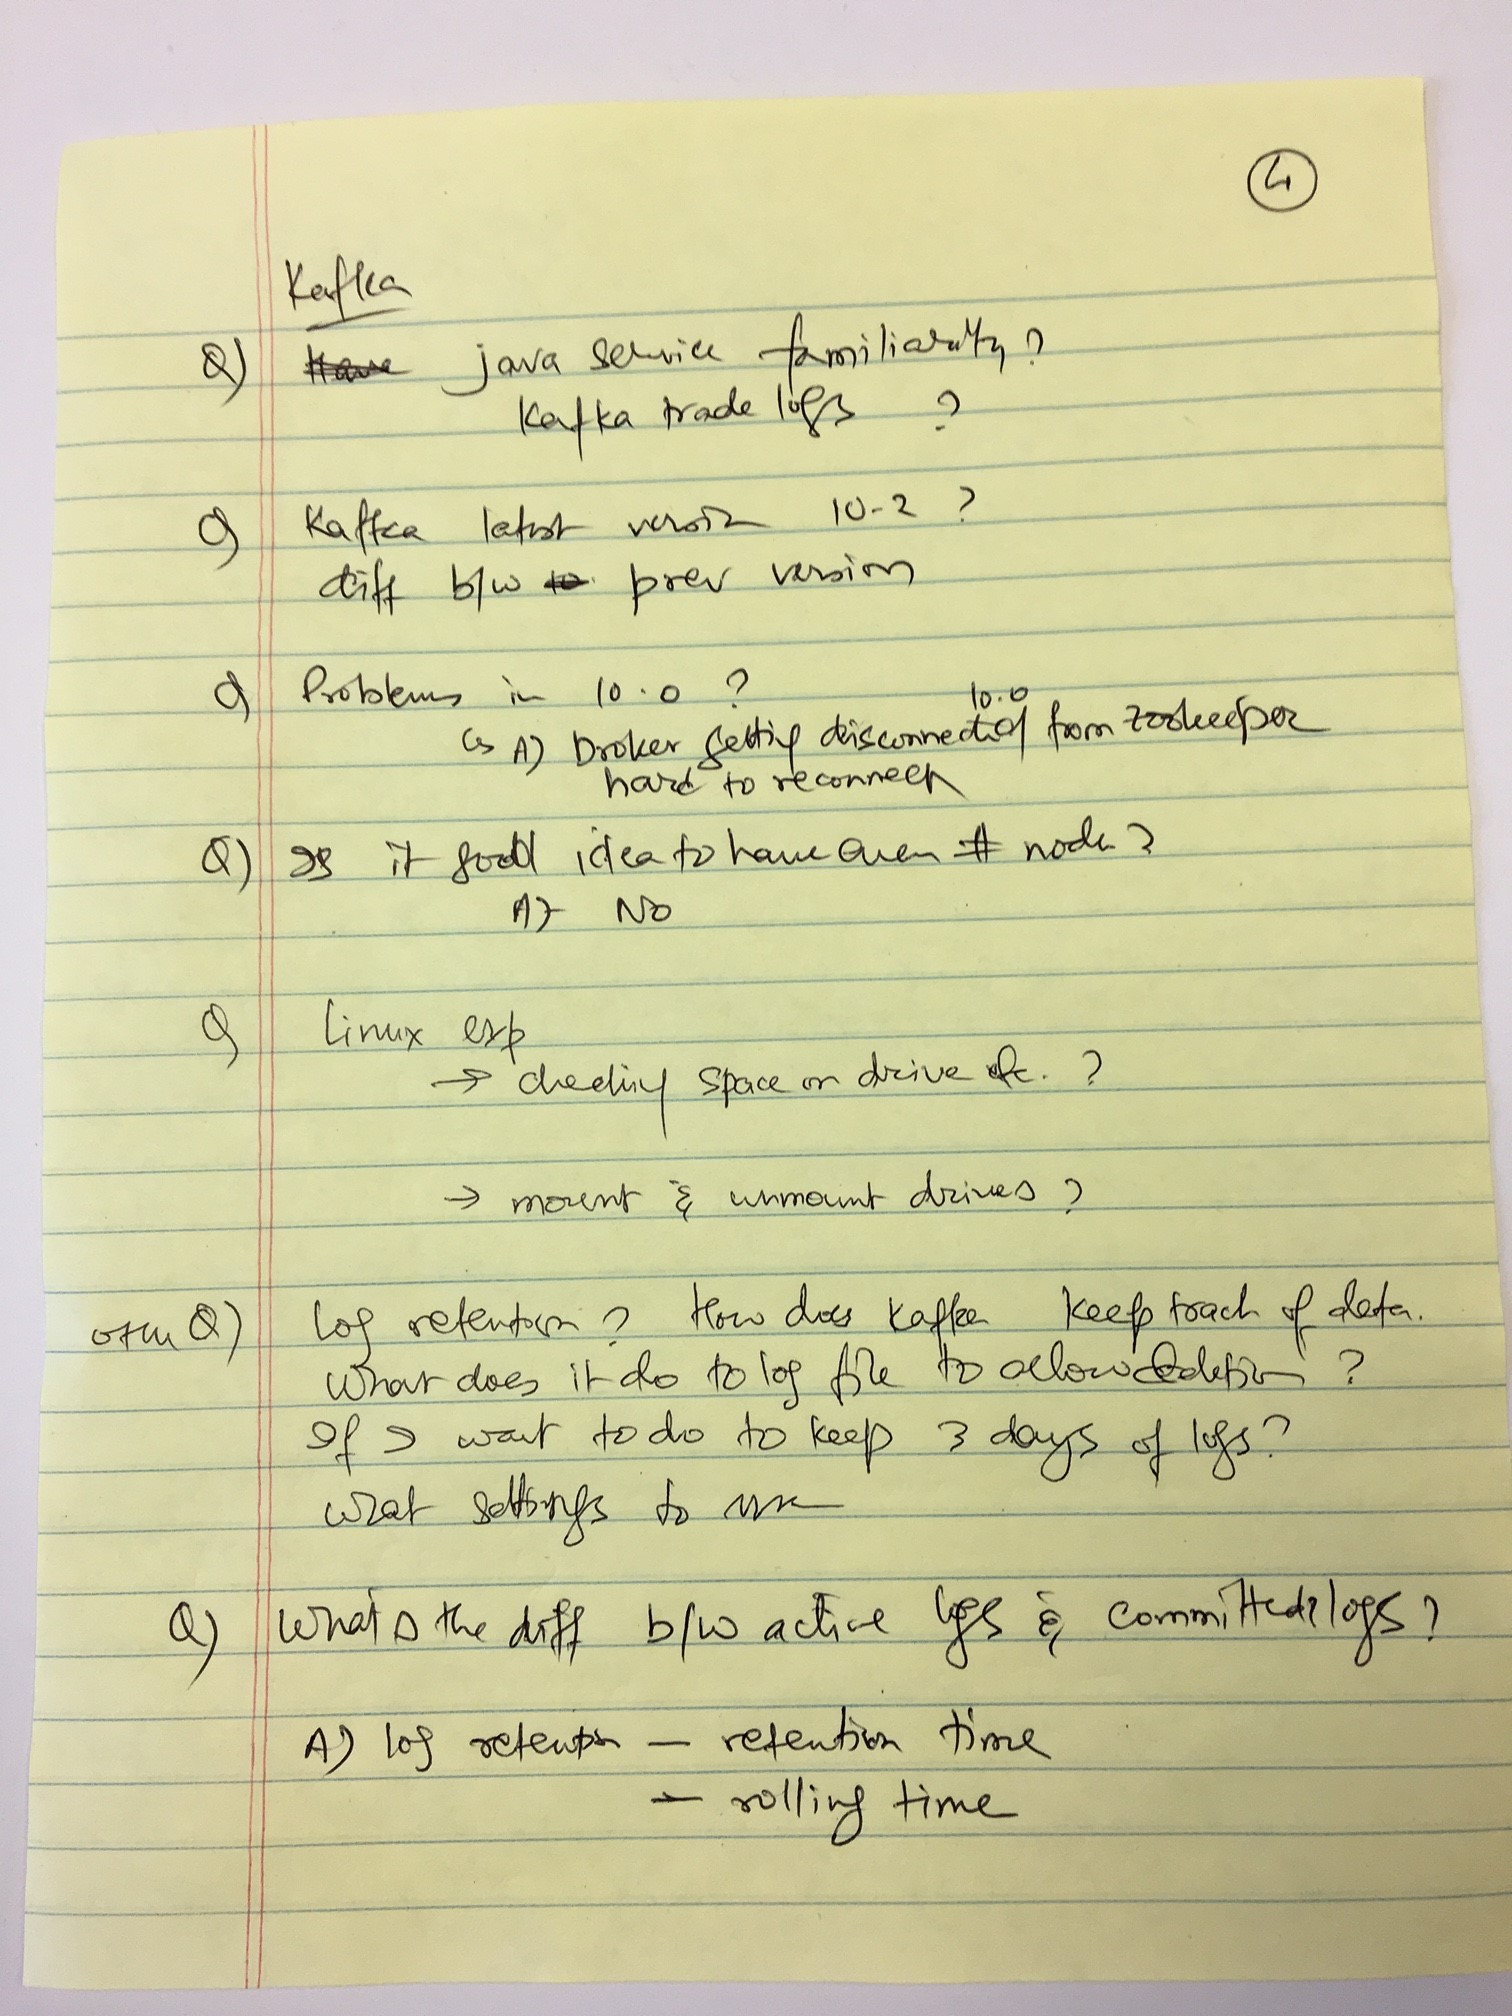 4
Kafka
Q) Have java service familiarity?
Kafka trade logs ?
Q Kafka latest version 10-2 ?
diff b/w to prev version
Q Problems in 10.0 ?
10.0
A) broker getting disconnected from zookeeper
hard to reconnect
Q) Is it good idea to have even # node?
A) No
Q Linux exp
→ checking space on drive etc. ?
→ mount & unmount drives ?
Q) log retention? How does kafka keep track of data.
What does it do to log file to allow deletion ?
If I want to do to keep 3 days of logs?
What settings to use
Q) What's the diff b/w active logs & committed logs?
A) log retention — retention time
— rolling time